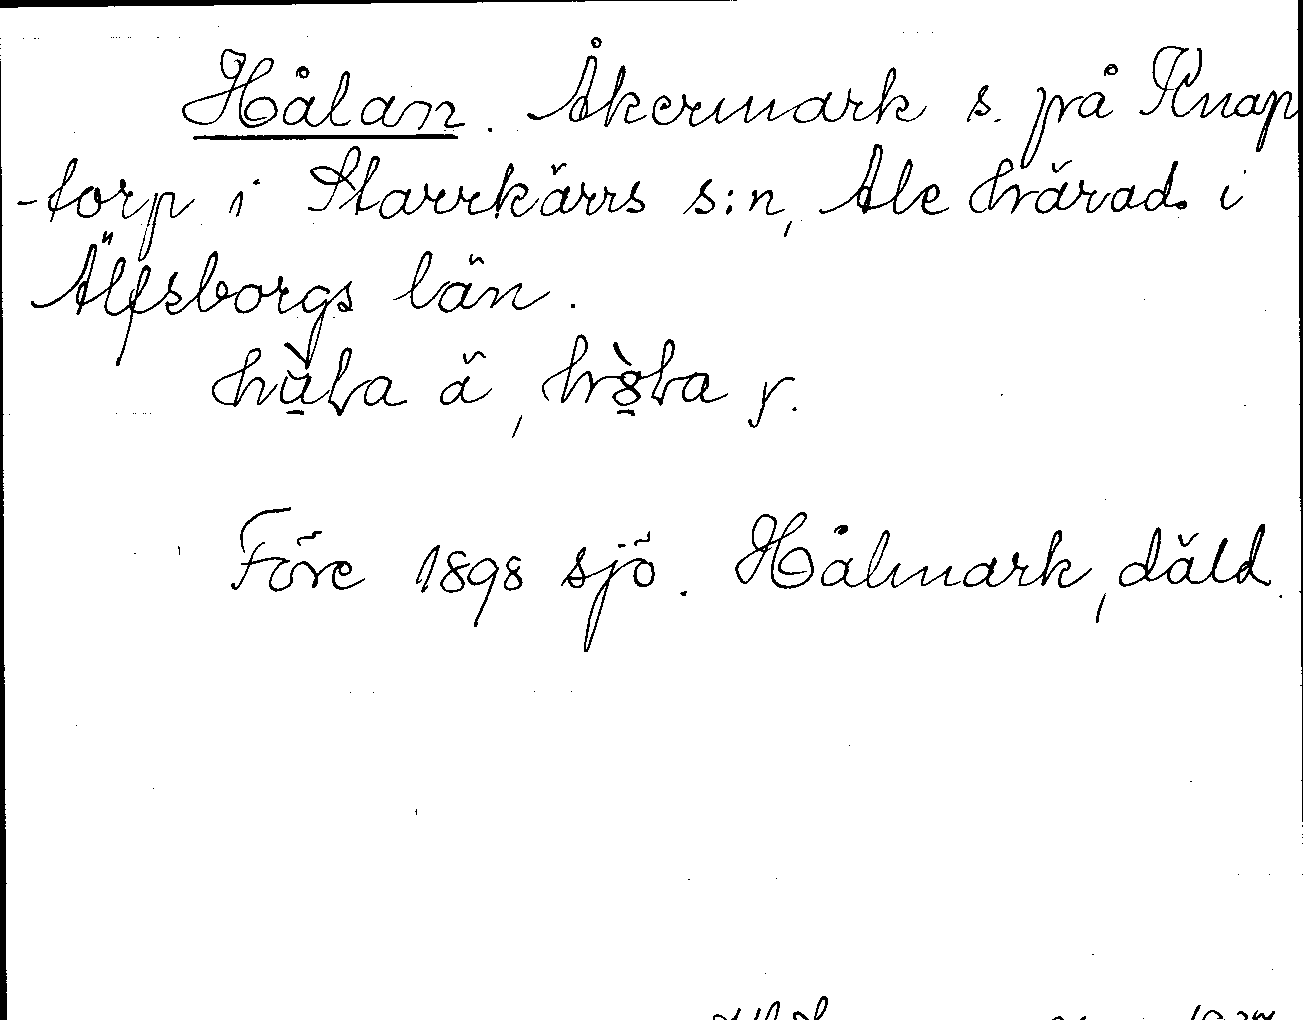 Hålan. Åkermark s. på Knap
-torp i Starrkärrs s:n, Ale härad. i
Älfsborgs län.
Före 1898 sjö. Hålmark, däld.